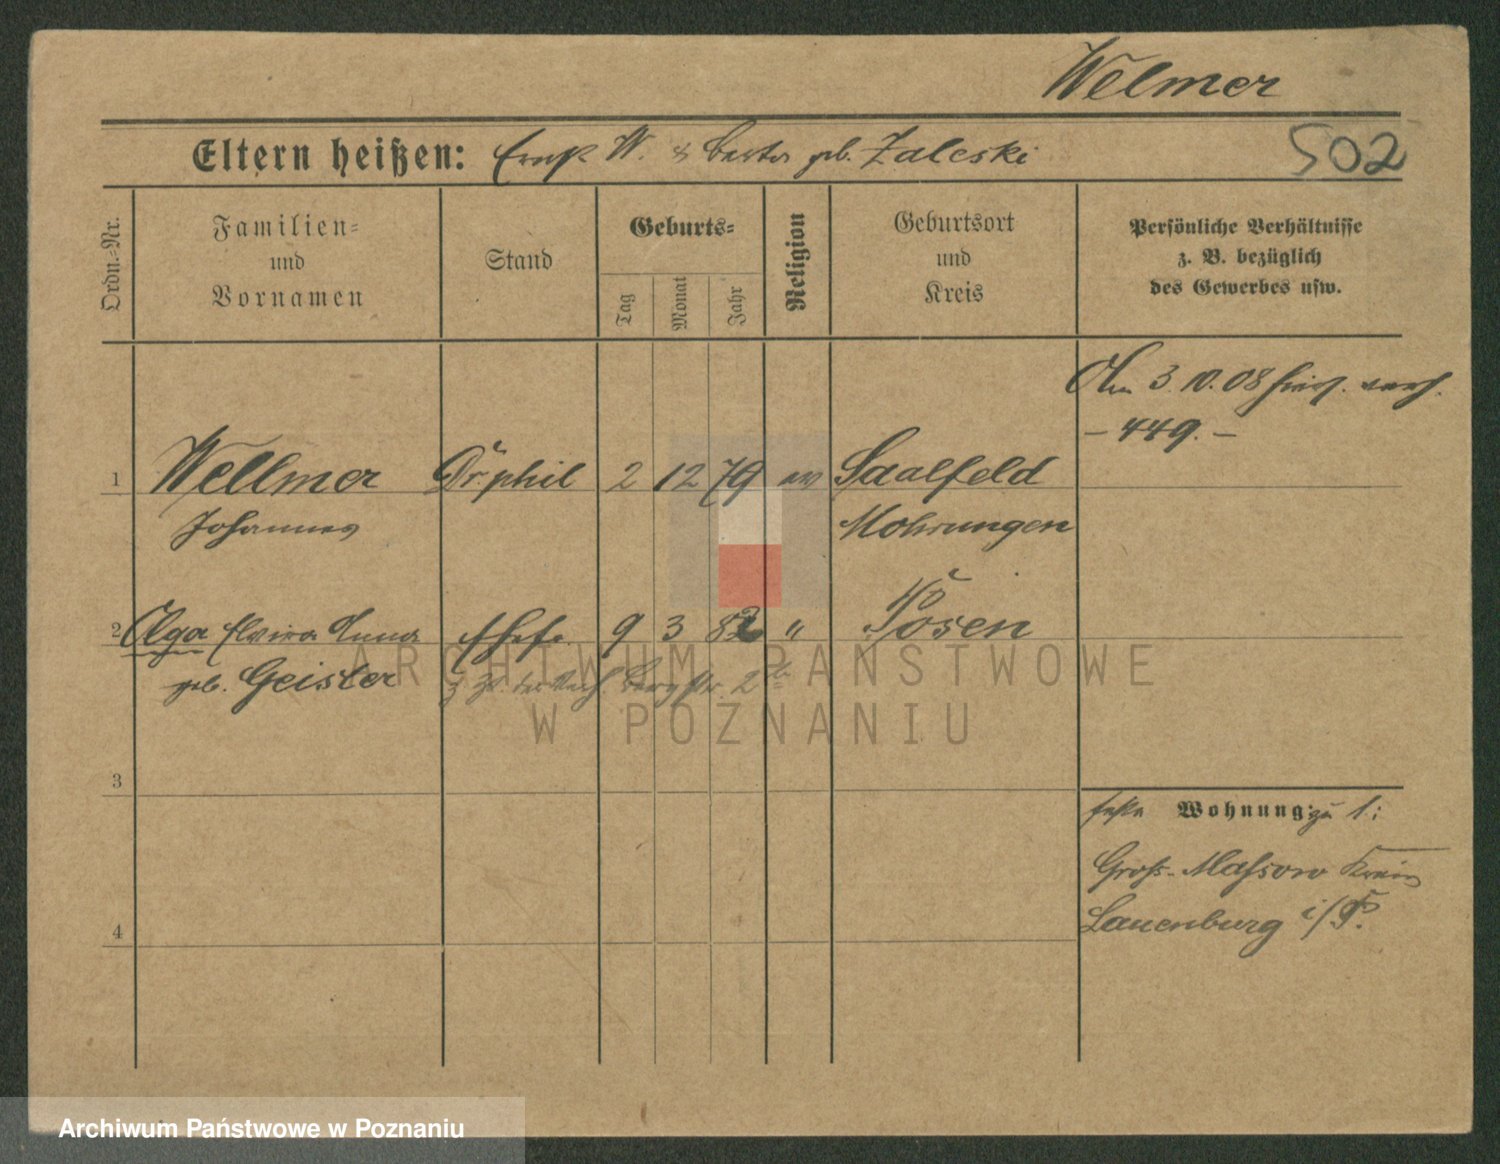 Welmer
Eltern heißen: Ernst W. & Berta geb. Zaleski
502
Ordn.-Nr.
Familien- und Vornamen
Stand
Geburts-
Tag
Monat
Jahr
Religion
Geburtsort und Kreis
Persönliche Verhältnisse
z. B. bezüglich
des Gewerbes usw.
Am 3.10.08 hier verh.
– 449. –
1 Wellmer Dr. phil 2 12 79 ev Saalfeld
Johannes Mohrungen
2 Olga Elvira Anna Ehefr. 9 3 82 " Posen
geb. Geisler z. Zt. Bergstr. 2
3
feste Wohnung: zu 1:
Gross-Massow Kreis
Lauenburg i/P.
4
ARCHIWUM PAŃSTWOWE
W POZNANIU
Archiwum Państwowe w Poznaniu